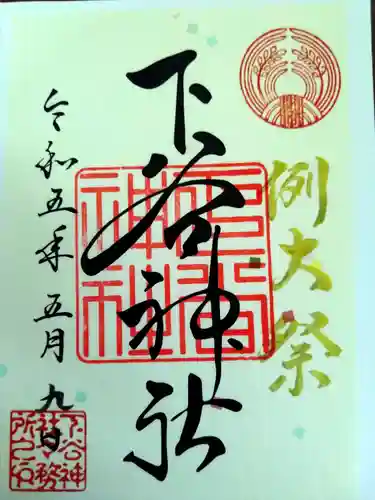 例大祭
下谷神社
令和五年五月九日
下谷神
社務
所之印